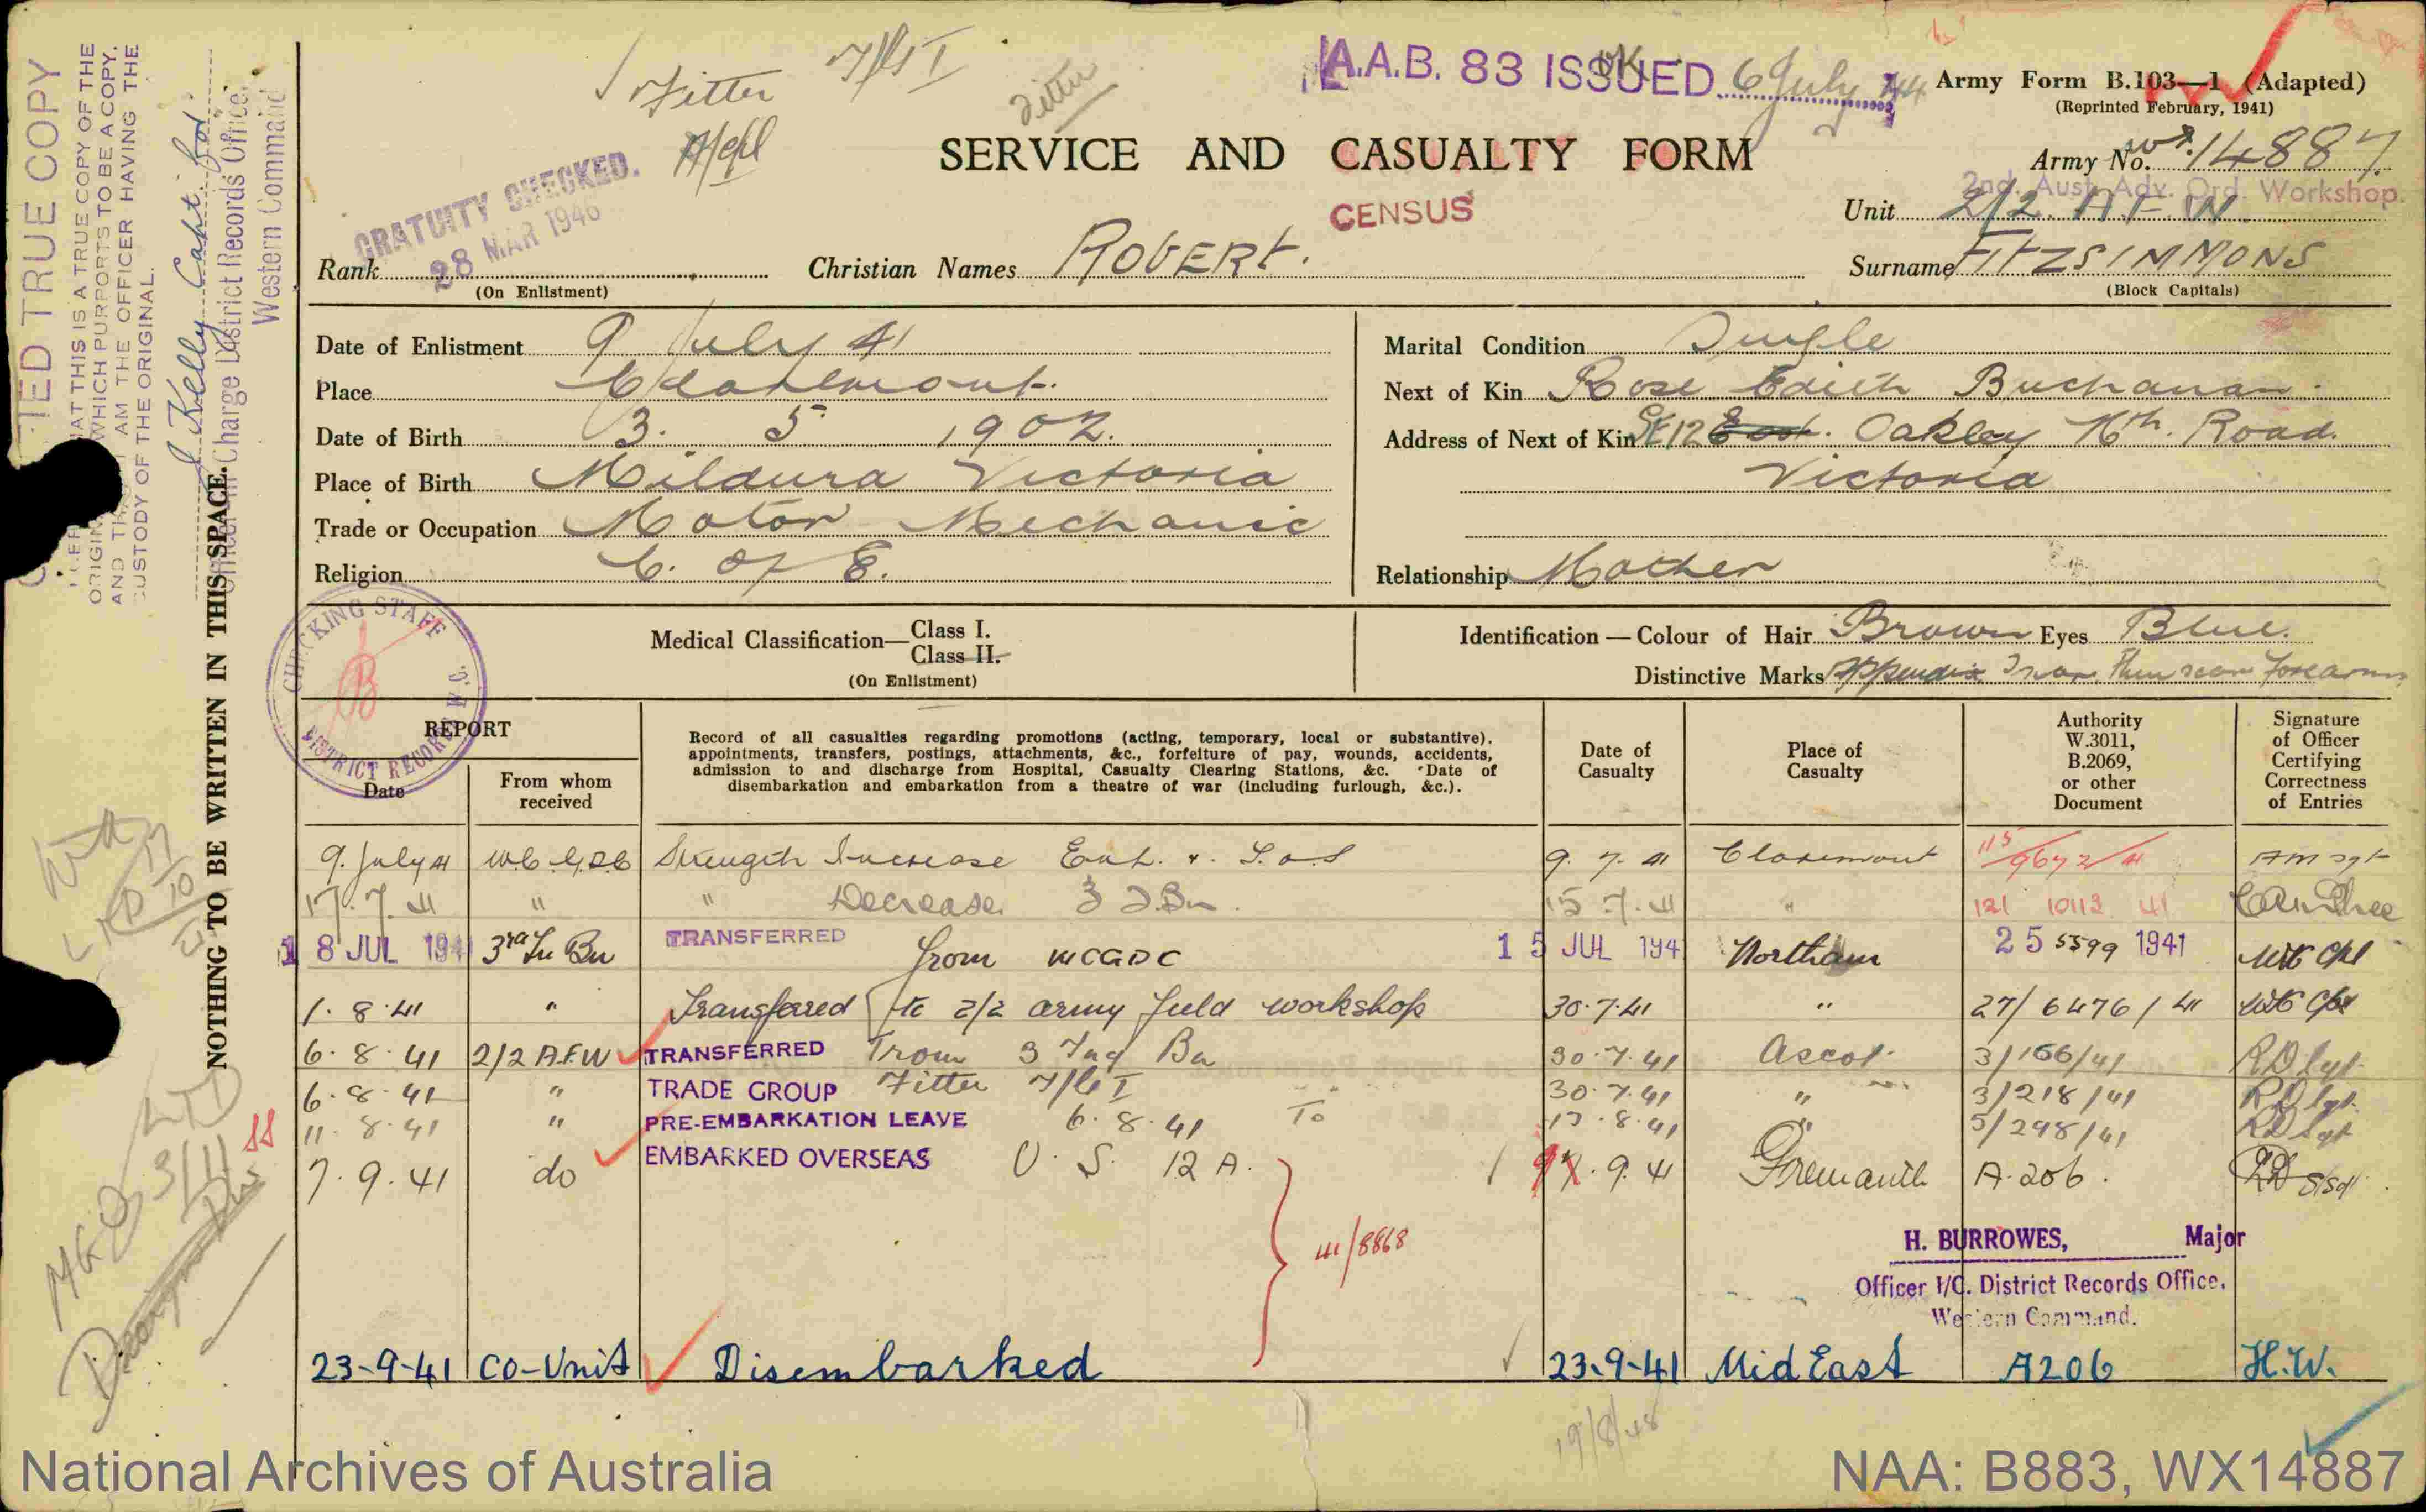 Fitter
T/G I
Fitter
A.A.B. 83 ISSUED 6 July 44
Army Form B.103—1 (Adapted)
(Reprinted February, 1941)
SERVICE AND CASUALTY FORM
CENSUS
Army No. WX 14887
2nd. Aust. Adv. Ord. Workshop.
Unit 2/2 A F W.
GRATUITY CHECKED.
28 MAR 1946
Rank
(On Enlistment)
Christian Names ROBERT.
Surname FITZSIMMONS
(Block Capitals)
Date of Enlistment 9 July 41
Place Claremont.
Date of Birth 3. 5 1902.
Place of Birth Mildura Victoria
Trade or Occupation Motor Mechanic
Religion C. of E.
Marital Condition Single
Next of Kin Rose Edith Buchanan.
Address of Next of Kin SE12 East. Oakley Nth. Road.
Victoria
Relationship Mother
Medical Classification— Class I.
Class II.
(On Enlistment)
Identification — Colour of Hair Brown Eyes Blue.
Distinctive Marks Appendix scar. scar forearm
CHECKING STAFF
DISTRICT RECORDS
B
REPORT
Date
From whom received
Record of all casualties regarding promotions (acting, temporary, local or substantive),
appointments, transfers, postings, attachments, &c., forfeiture of pay, wounds, accidents,
admission to and discharge from Hospital, Casualty Clearing Stations, &c. Date of
disembarkation and embarkation from a theatre of war (including furlough, &c.).
Date of Casualty
Place of Casualty
Authority W.3011, B.2069, or other Document
Signature of Officer Certifying Correctness of Entries
9. July 41 W.C.G.D.C Strength Increase Enl. & T.o.S 9. 7. 41 Claremont 115/9672/41
17. 7. 41 " " Decrease 3 T.Bn. 15. 7. 41 " 121 10113 41
18 JUL 1941 3rd Tn Bn TRANSFERRED from WCGDC 15 JUL 194 Northam 25 5599 1941 Cpl
1. 8. 41 " Transferred to 2/2 army field workshop 30.7.41 " 27/6476/41 Cpl
6. 8. 41 2/2 A.F.W TRANSFERRED From 3 Tng Bn 30.7.41 Ascot. 3/166/41
6. 8. 41 " TRADE GROUP Fitter T/G I 30.7.41 " 3/218/41
11. 8. 41 " PRE-EMBARKATION LEAVE 6. 8. 41 To 17. 8. 41 " 5/298/41
7. 9. 41 do EMBARKED OVERSEAS U. S. 12 A. 9. 41 Fremantle A. 206.
41/8868
H. BURROWES, Major
Officer I/C. District Records Office,
Western Command.
23-9-41 CO-Unit Disembarked 23-9-41 Mid East A206 H.W.
19/8/48
TED TRUE COPY
AT THIS IS A TRUE COPY OF THE
ORIGIN WHICH PURPORTS TO BE A COPY.
AND TH AM THE OFFICER HAVING THE
CUSTODY OF THE ORIGINAL.
J Kelly Capt for:
Officer in Charge District Records Office,
Western Command
NOTHING TO BE WRITTEN IN THIS SPACE.
National Archives of Australia
NAA: B883, WX14887